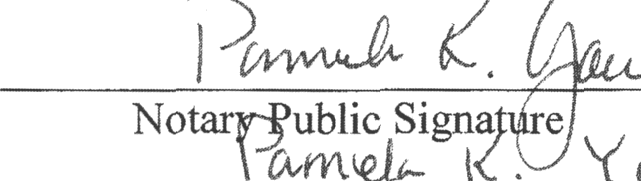 Pamela K. Yau
Notary Public Signature
Pamela K. Y